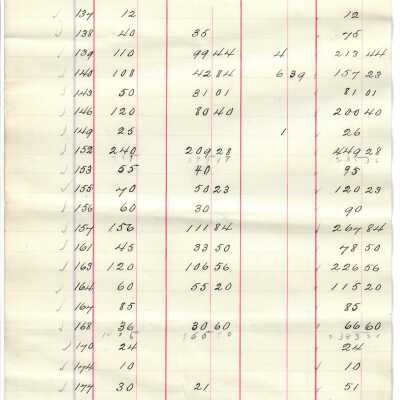 137 12 12
138 40 35 75
139 110 99 44 4 213 44
140 108 42 84 6 39 157 23
143 50 31 01 81 01
146 120 80 40 200 40
149 25 1 26
152 240 209 28 449 28
153 55 40 95
155 70 50 23 120 23
156 60 30 90
157 156 111 84 267 84
161 45 33 50 78 50
163 120 106 56 226 56
164 60 55 20 115 20
167 85 85
168 36 30 60 66 60
170 24 24
174 10 10
177 30 21 51